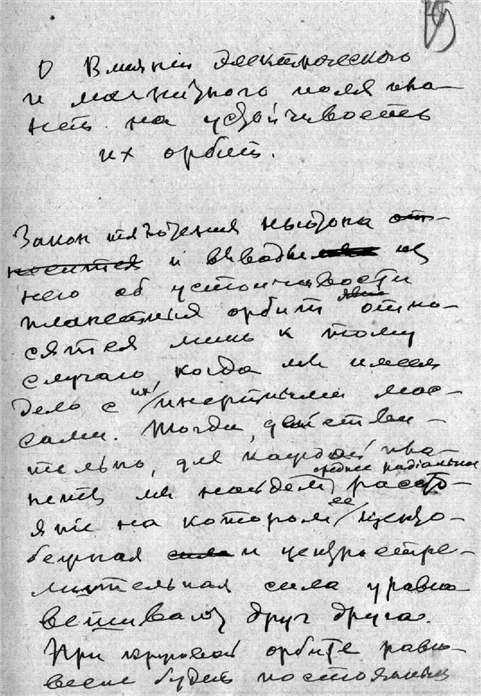 О влиянии электрического
и магнитного поля пла-
нет на устойчивость
их орбит.
Закон тяготения Ньютона от-
носится и выводы из
него об устойчивости
планетных орбит отно-
сятся лишь к тому
случаю когда мы имеем
дело с инертными мас-
сами. Тогда, действи-
тельно, для каждой пла-
среднее радиальное
неты мы найдем рассто-
яние на котором ее центро-
бежная сила и центростре-
мительная сила уравно
вешивают друг друга.
При круговой орбите равно
весие будет постоянным